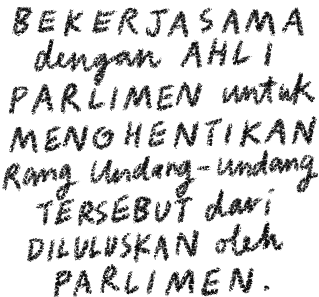 BEKERJASAMA
dengan AHLI
PARLIMEN untuk
MENGHENTIKAN
Rang Undang-undang
TERSEBUT dari
DILULUSKAN oleh
PARLIMEN.